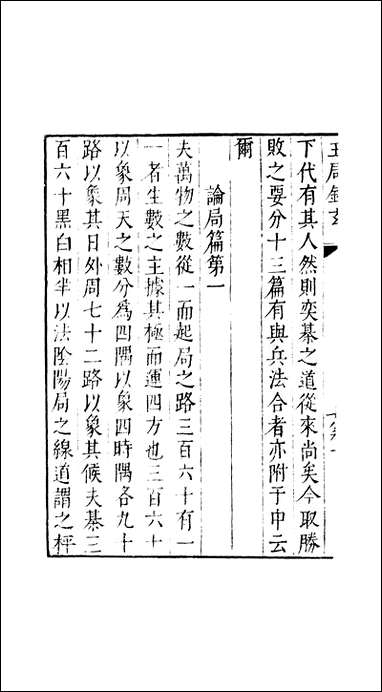 下代有其人然則奕棊之道從來尚矣今取勝
敗之要分十三篇有與兵法合者亦附于中云
爾
論局篇第一
夫萬物之數從一而起局之路三百六十有一
一者生數之主據其極而運四方也三百六十
以象周天之數分為四隅以象四時隅各九十
路以象其日外周七十二路以象其候夫棊三
百六十黑白相半以法陰陽局之線道謂之枰